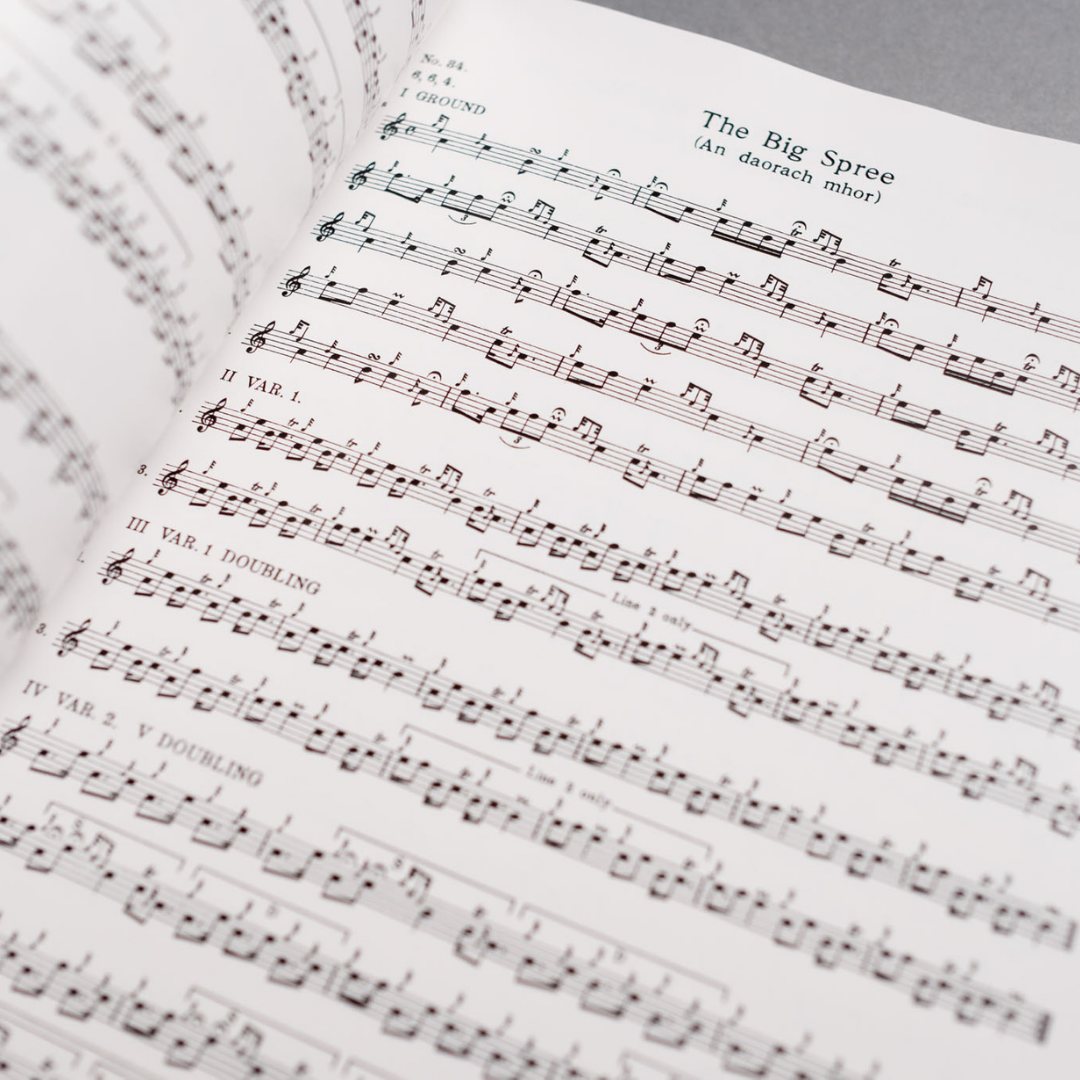 No. 84.
6, 6, 4.
I GROUND
The Big Spree
(An daorach mhor)
3
3
3
II VAR. 1.
3.
Line 2 only
III VAR. 1 DOUBLING
3.
Line 2 only
IV VAR. 2. V DOUBLING